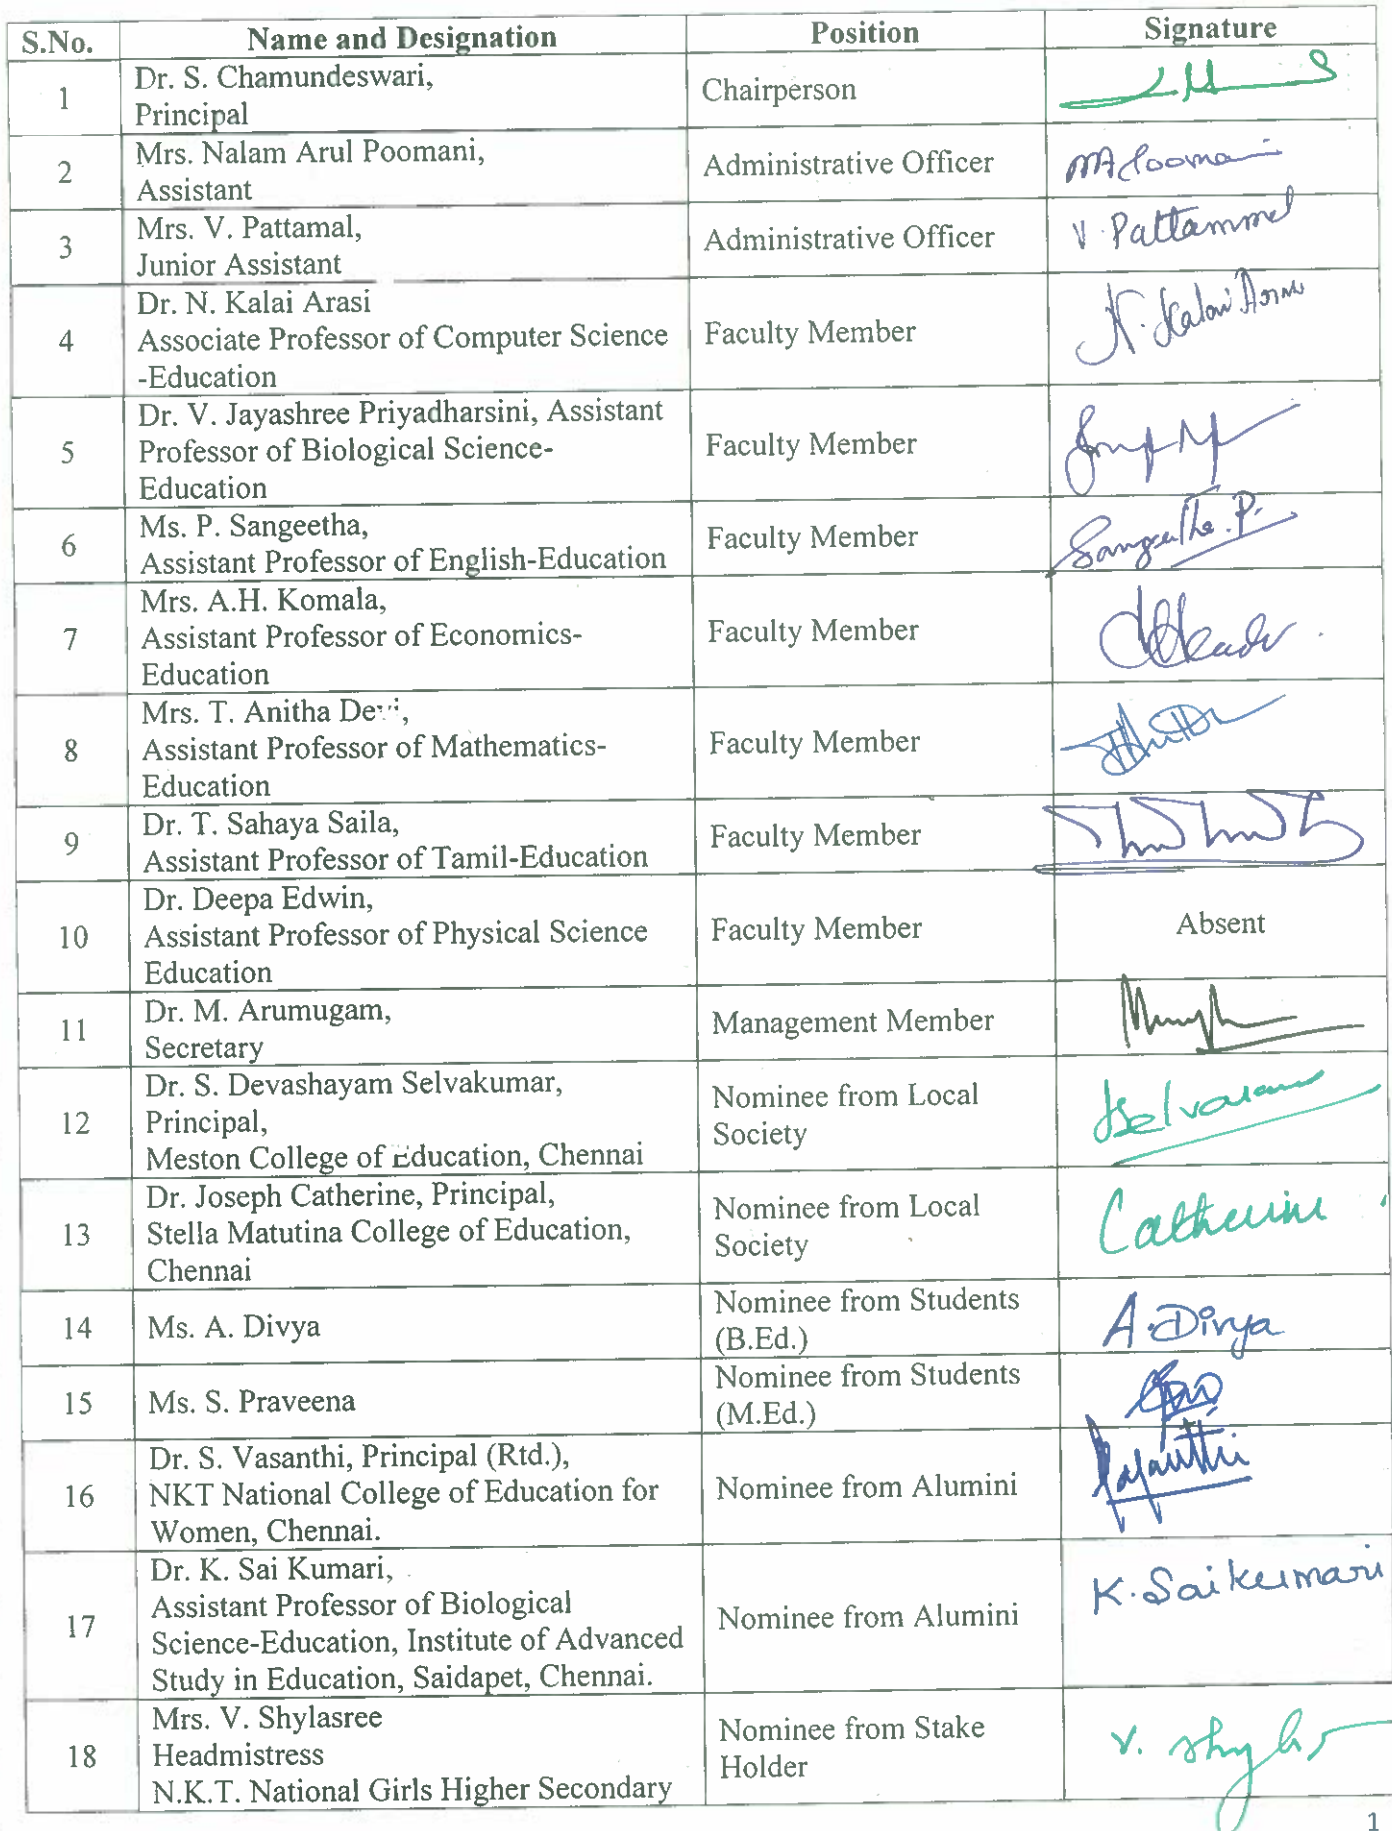 S.No. Name and Designation Position Signature
1 Dr. S. Chamundeswari,
Principal
Chairperson
2 Mrs. Nalam Arul Poomani,
Assistant
Administrative Officer
3 Mrs. V. Pattamal,
Junior Assistant
Administrative Officer
V. Pattammal
4 Dr. N. Kalai Arasi
Associate Professor of Computer Science
-Education
Faculty Member
N. Kalai Arasi
5 Dr. V. Jayashree Priyadharsini, Assistant
Professor of Biological Science-
Education
Faculty Member
6 Ms. P. Sangeetha,
Assistant Professor of English-Education
Faculty Member
Sangeetha. P.
7 Mrs. A.H. Komala,
Assistant Professor of Economics-
Education
Faculty Member
8 Mrs. T. Anitha Devi,
Assistant Professor of Mathematics-
Education
Faculty Member
9 Dr. T. Sahaya Saila,
Assistant Professor of Tamil-Education
Faculty Member
10 Dr. Deepa Edwin,
Assistant Professor of Physical Science
Education
Faculty Member
Absent
11 Dr. M. Arumugam,
Secretary
Management Member
12 Dr. S. Devashayam Selvakumar,
Principal,
Meston College of Education, Chennai
Nominee from Local
Society
13 Dr. Joseph Catherine, Principal,
Stella Matutina College of Education,
Chennai
Nominee from Local
Society
Catherine
14 Ms. A. Divya
Nominee from Students
(B.Ed.)
A. Divya
15 Ms. S. Praveena
Nominee from Students
(M.Ed.)
16 Dr. S. Vasanthi, Principal (Rtd.),
NKT National College of Education for
Women, Chennai.
Nominee from Alumini
17 Dr. K. Sai Kumari,
Assistant Professor of Biological
Science-Education, Institute of Advanced
Study in Education, Saidapet, Chennai.
Nominee from Alumini
K. Saikumari
18 Mrs. V. Shylasree
Headmistress
N.K.T. National Girls Higher Secondary
Nominee from Stake
Holder
1